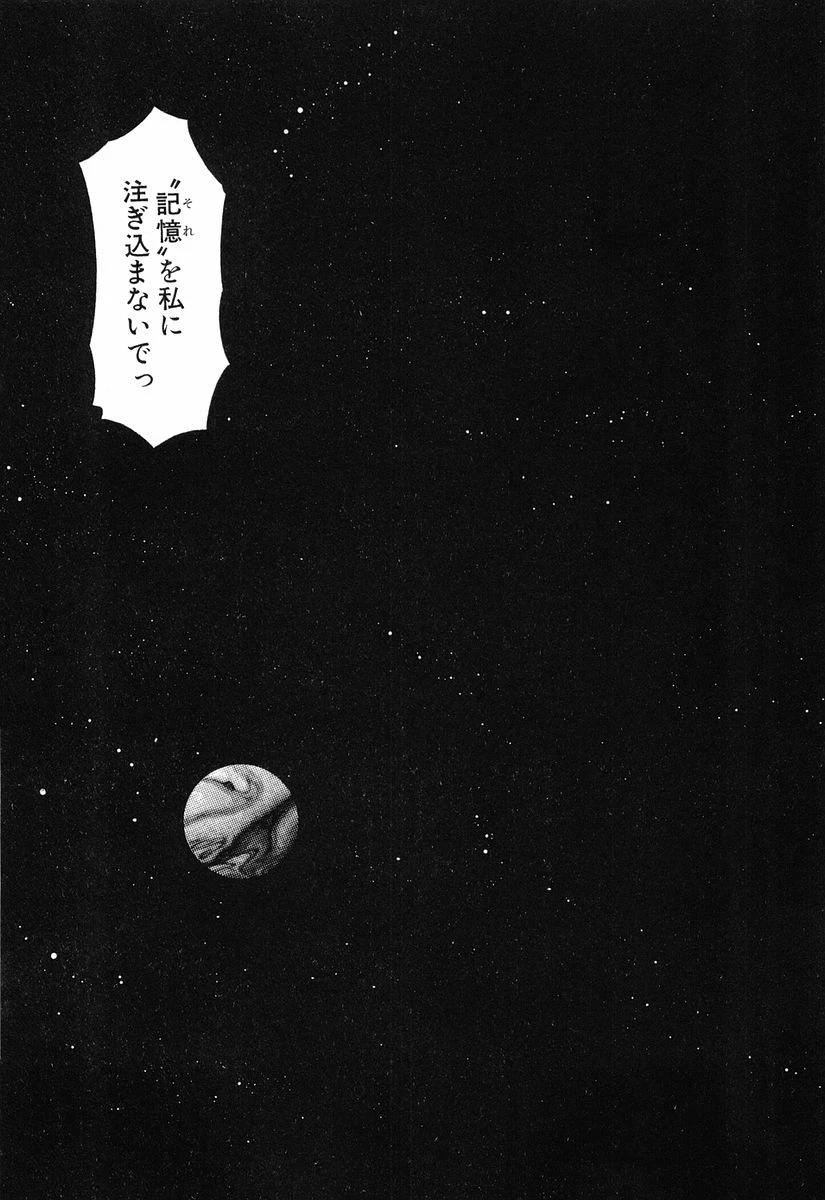 〝記憶〟を私に
それ
注ぎ込まないでっ